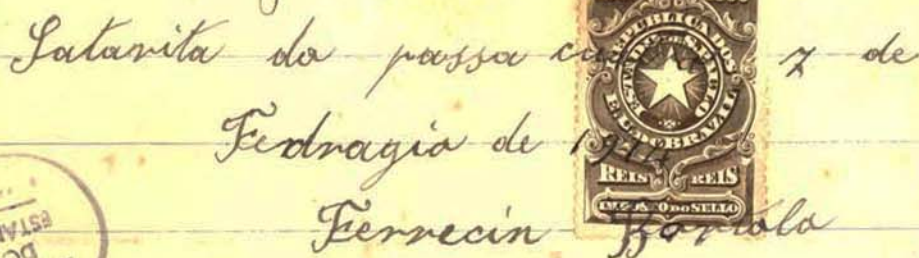 Satarita do passa 7 de
Fedragio de 1914
Ferrecin Bortolo
REPUBLICA DOS
ESTADOS UNIDOS
DO BRAZIL
REIS REIS
IMPOSTO DO SELLO
ESTA